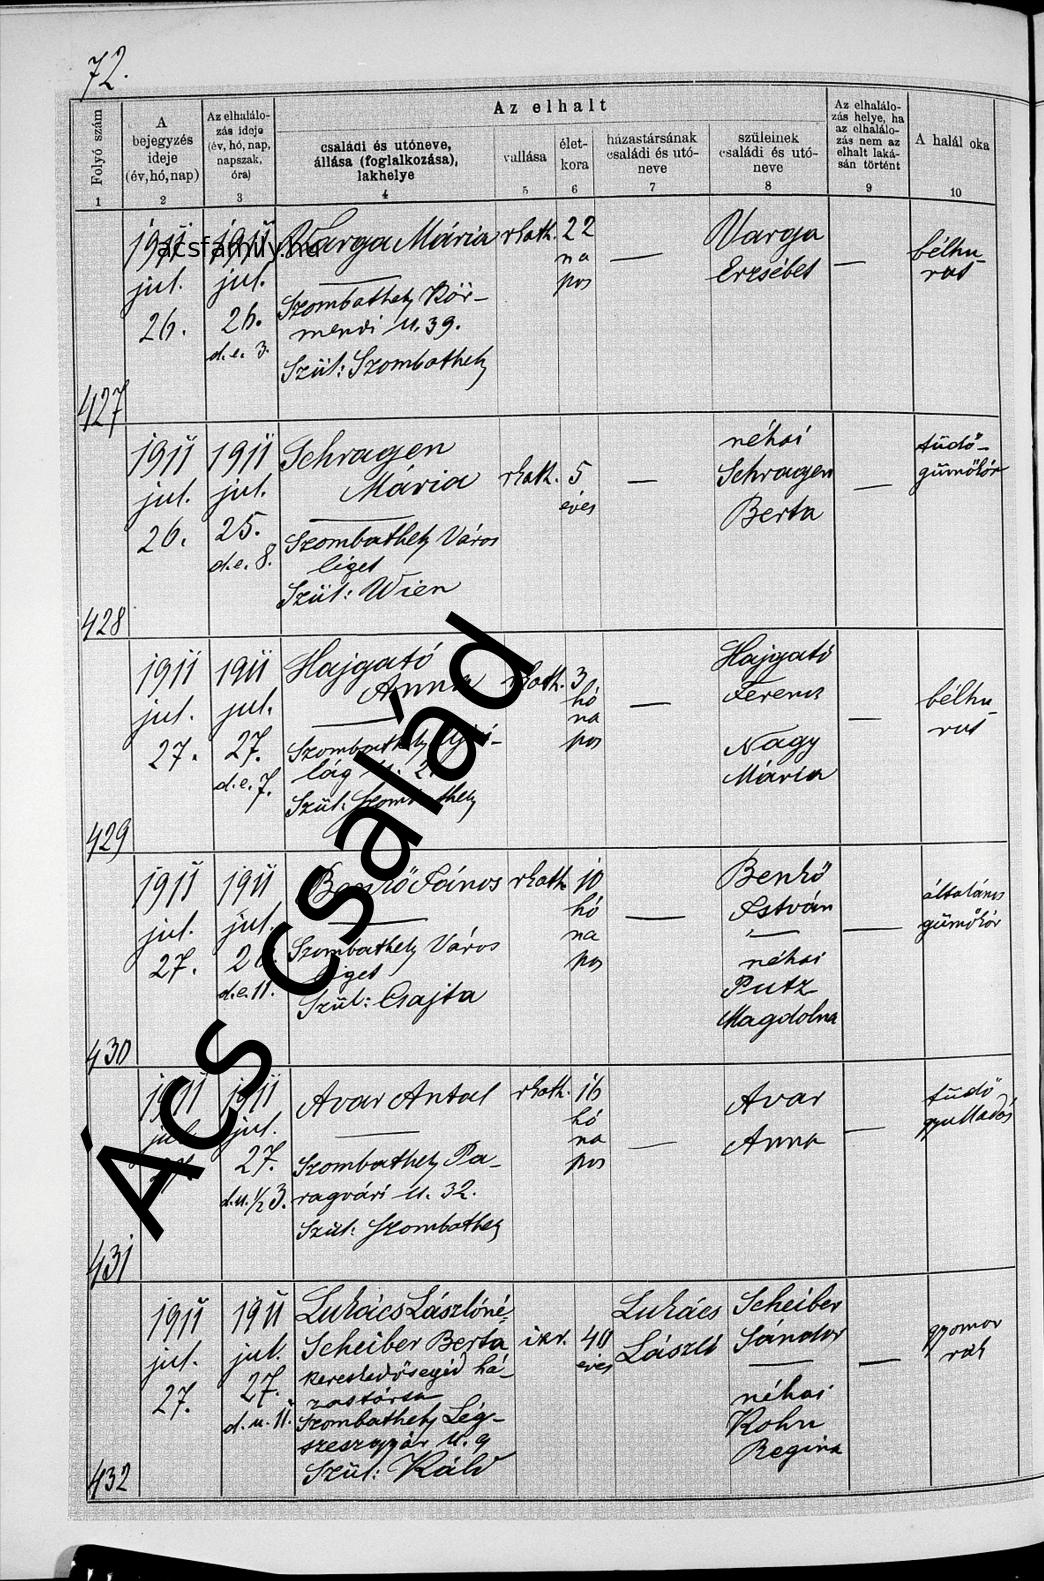 72.
Az elhalt
Folyó szám
A bejegyzés ideje (év, hó, nap)
Az elhalálozás ideje (év, hó, nap, napszak, óra)
családi és utóneve, állása (foglalkozása), lakhelye
vallása
életkora
házastársának családi és utóneve
szüleinek családi és utóneve
Az elhalálozás helye, ha az elhalálozás nem az elhalt lakásán történt
A halál oka
1 2 3 4 5 6 7 8 9 10
427
1911 jul. 26.
1911 jul. 26. d. e. 3.
Varga Mária
Szombathely Körmendi u. 39.
Szül: Szombathely
rkath.
22 napos
—
Varga Erzsébet
—
bélhurut
428
1911 jul. 26.
1911 jul. 25. d. e. 8.
Schragen Mária
Szombathely Városliget
Szül: Wien
rkath.
5 éves
—
néhai Schragen Berta
—
tüdőgümőkór
429
1911 jul. 27.
1911 jul. 27. d. e. 7.
Hajgató Anna
Szombathely
Szül: Szombathely
rkath.
3 hónapos
—
Hajgató Ferenc
Nagy Mária
—
bélhurut
430
1911 jul. 27.
1911 jul. d. e. 11.
Benkő János
Szombathely Városliget
Szül: Csajta
rkath.
10 hónapos
—
Benkő István
néhai Putz Magdolna
—
általános gümőkór
431
1911 jul. 27.
1911 jul. 27. d. u. ½ 3.
Avar Antal
Szombathely Paragvári u. 32.
Szül: Szombathely
rkath.
16 hónapos
—
Avar Anna
—
tüdőgyulladás
432
1911 jul. 27.
1911 jul. 27. d. u. 11.
Lukács Lászlóné Scheiber Berta
kereskedősegéd házastársa
Szombathely Légszeszgyár u. 9
Szül: Káld
izr.
40 éves
Lukács László
Scheiber Sándor
néhai Kohn Regina
—
gyomorrák
acsfamily.hu
Ács család